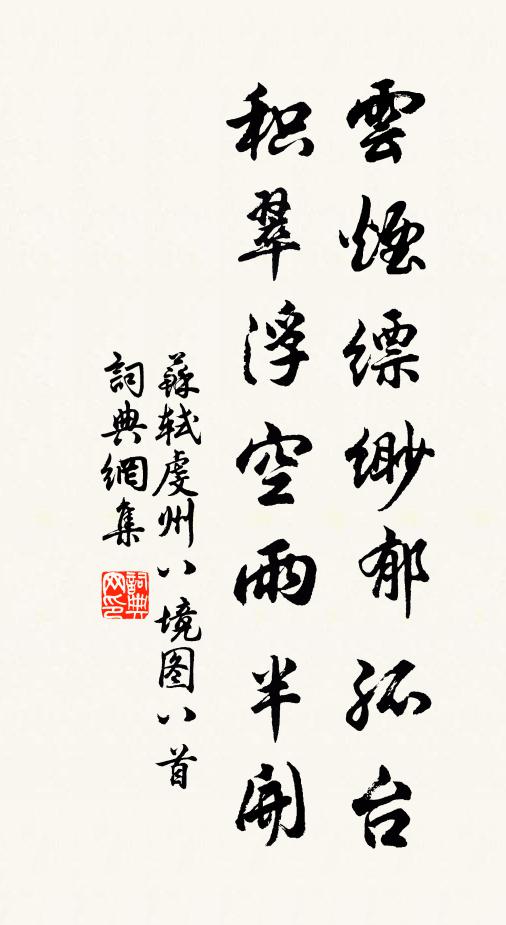 雲煙缥緲郁孤台
积翠浮空雨半開
蘇轼虔州八境图八首
詞典網集
詞典网印